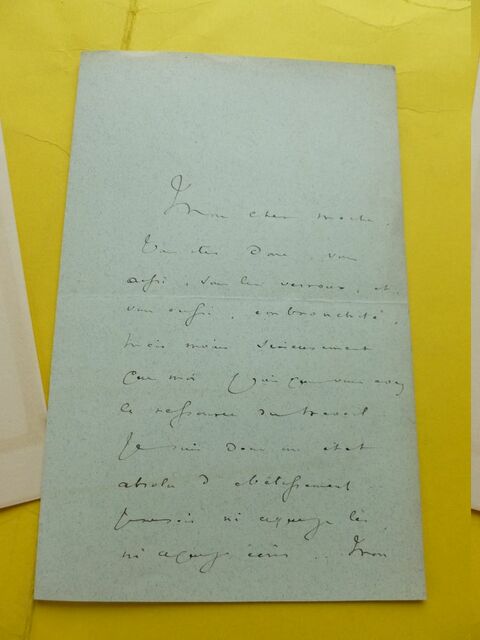 Mon cher maître
Vous êtes donc, vous
aussi, sous les verroux, et
vous aussi, embronchité,
mais moins sérieusement
que moi puisque vous avez
la ressource du travail
Je suis dans un état
absolu d'abêtissement
Je ne sais ni ce que je lis
ni ce que j'écris .. Mon